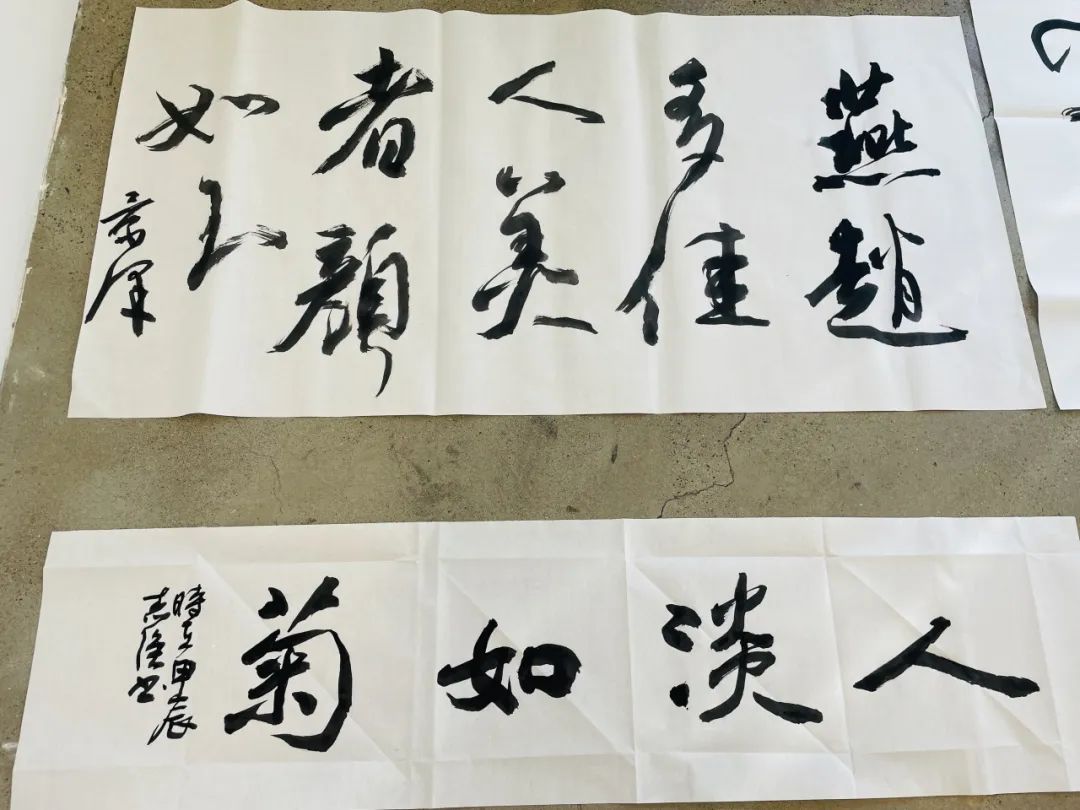 燕趙
多佳
人美
者顏
如玉
景澤
人淡如菊
時在甲辰
志隆书